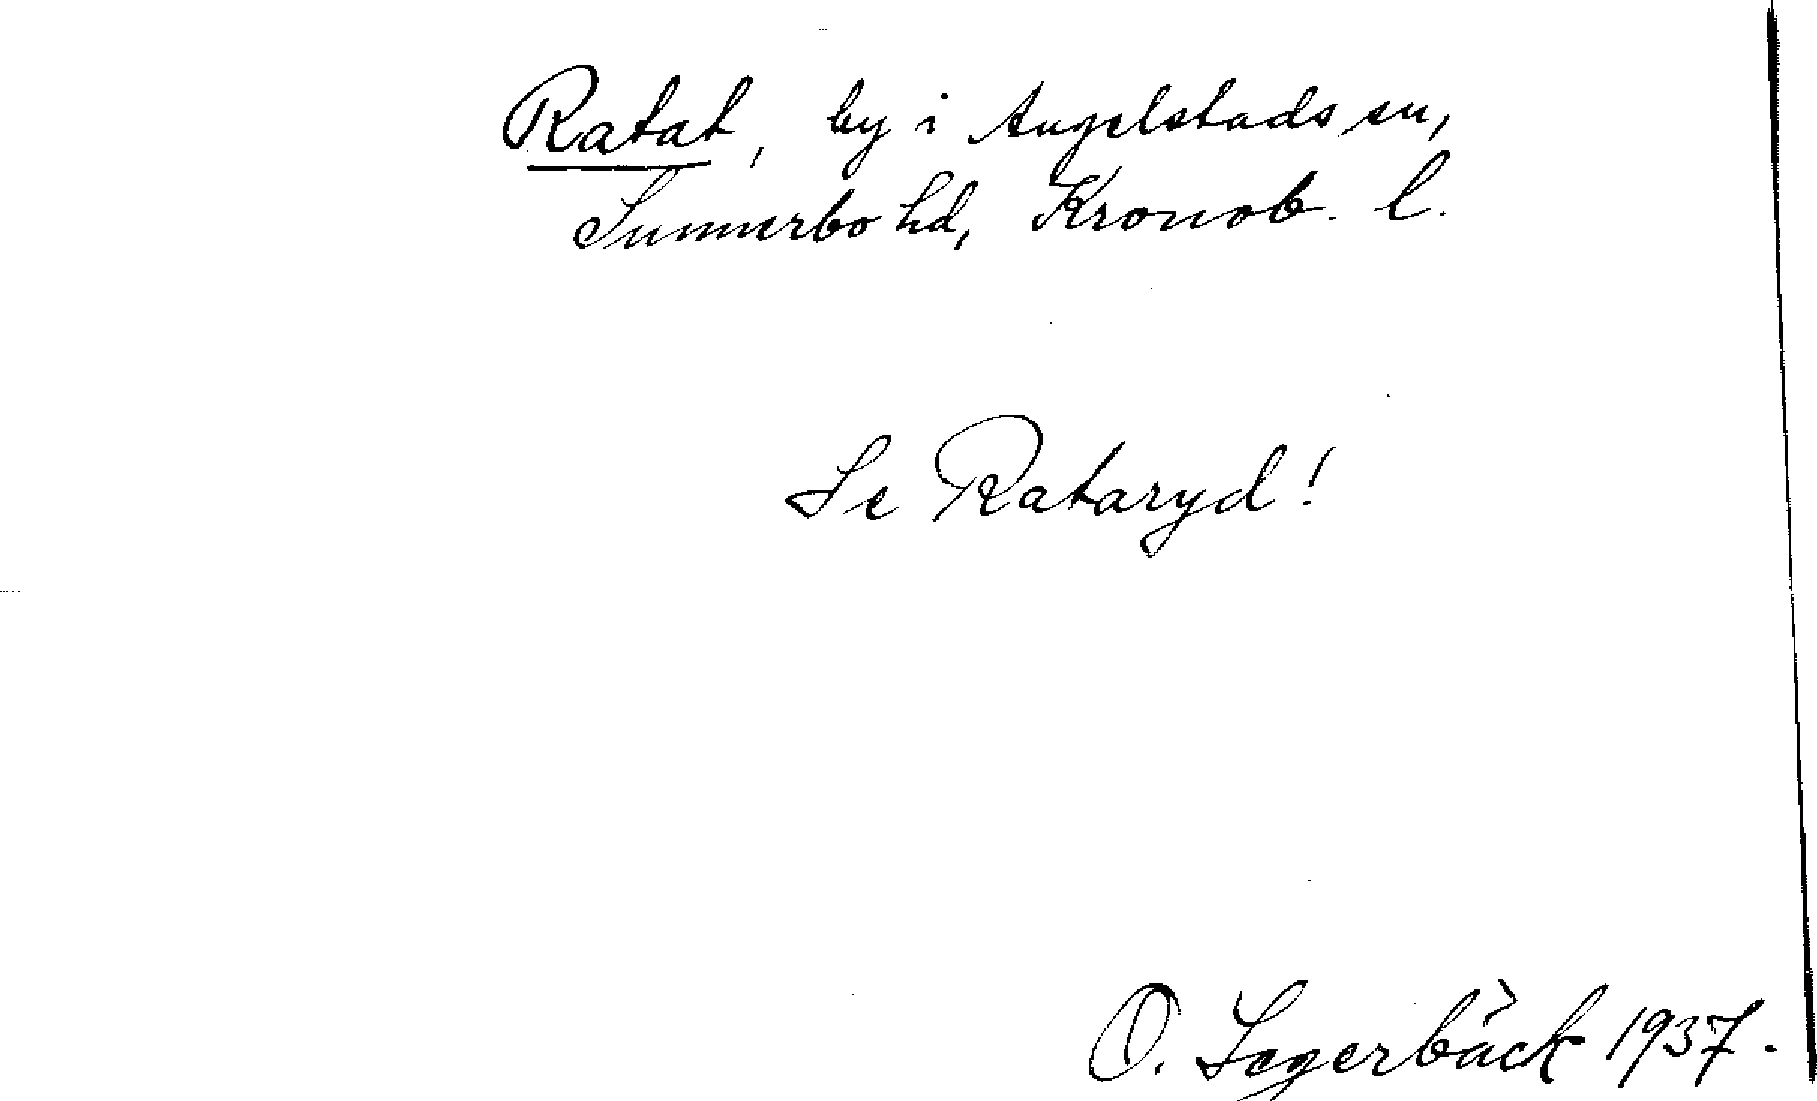 Ratat, by i Angelstads sn,
Sunnerbo hd, Kronob. l.
Se Rataryd!
O. Segerbäck 1937.